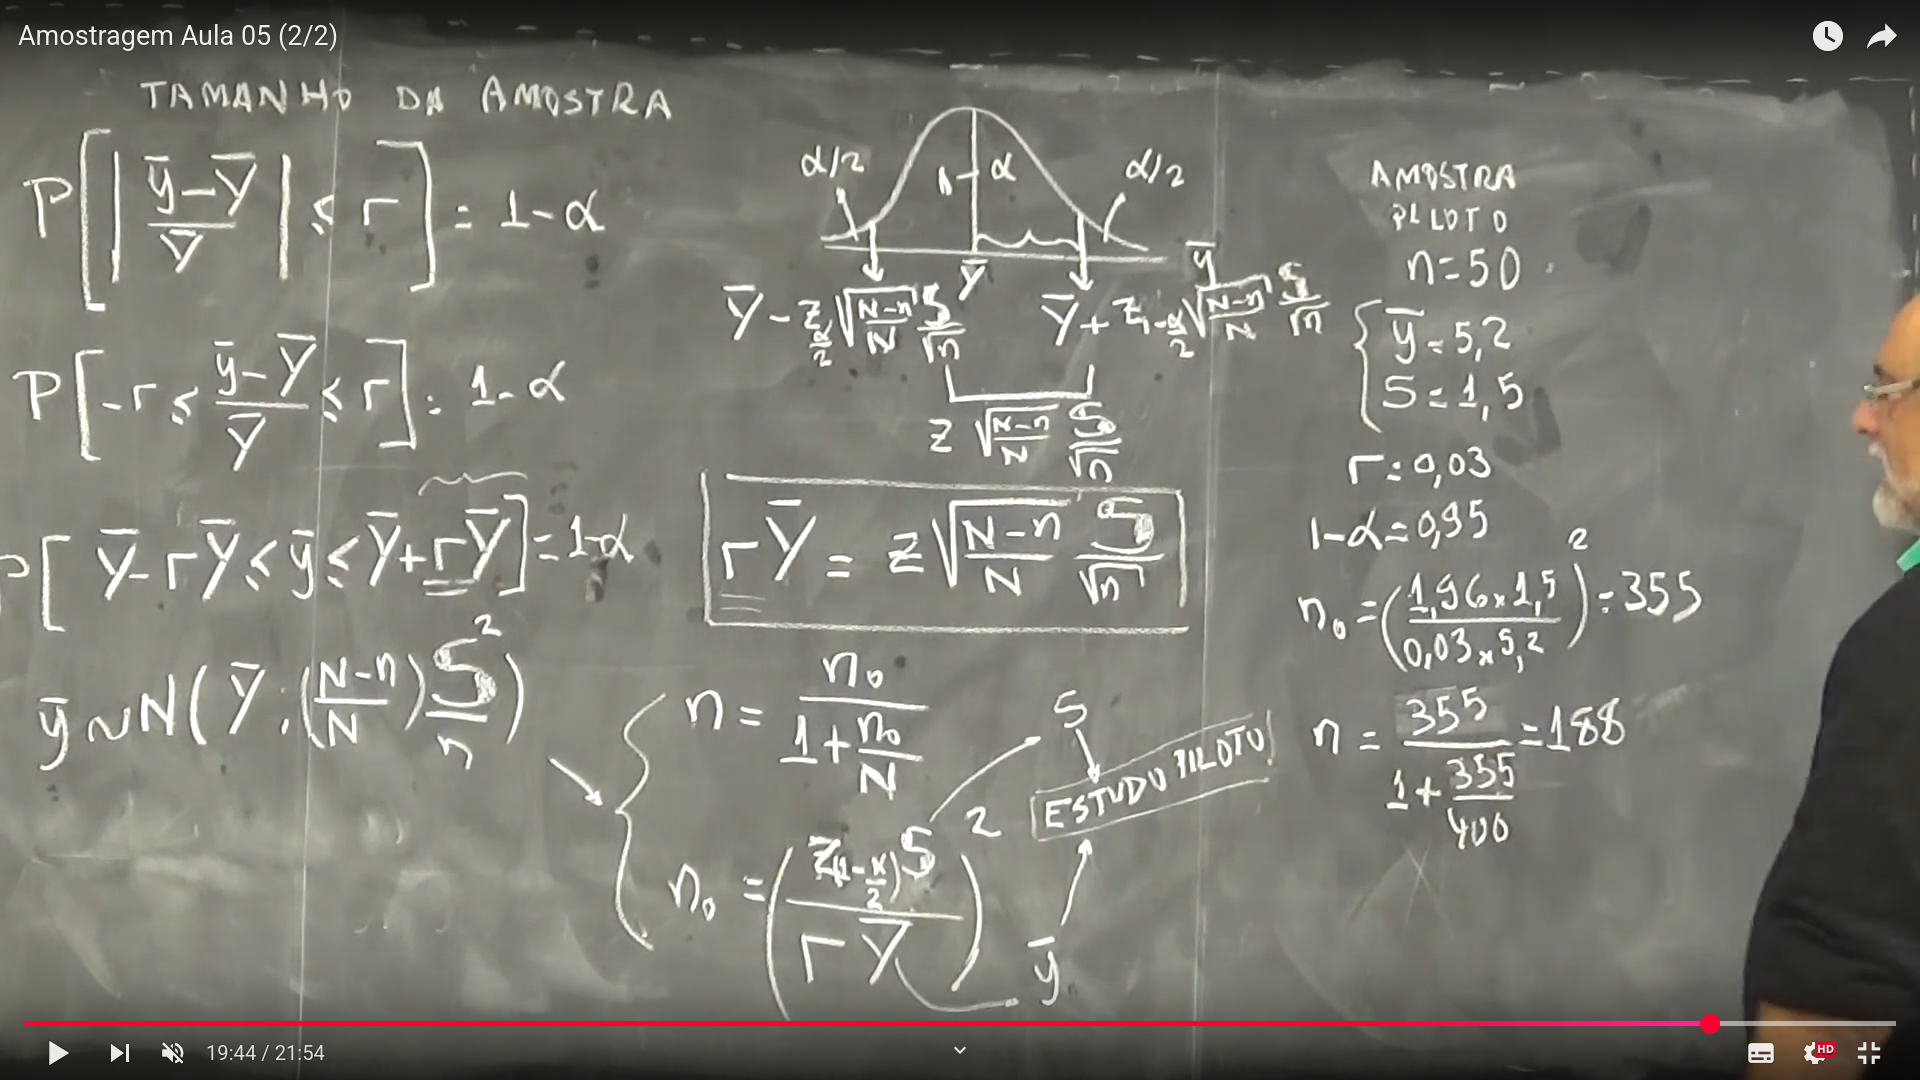 Amostragem Aula 05 (2/2)
TAMANHO DA AMOSTRA
P[|(ȳ-Ȳ)/Ȳ| ≤ r] = 1-α
P[-r ≤ (ȳ-Ȳ)/Ȳ ≤ r] = 1-α
P[Ȳ-rȲ ≤ ȳ ≤ Ȳ+rȲ] = 1-α
ȳ ~ N(Ȳ; ((N-n)/N) S²/n)
α/2 1-α α/2
Ȳ ȳ
Ȳ - z_{α/2} √((N-n)/N) S/√n
Ȳ + z_{1-α/2} √((N-n)/N) S/√n
z √((N-n)/N) S/√n
rȲ = z √((N-n)/N) S/√n
n = n₀/(1+n₀/N)
n₀ = (z_{(1-α/2)} S/(rȲ))²
S
ESTUDO PILOTO!
ȳ
AMOSTRA
PILOTO
n=50
ȳ=5,2
S=1,5
r=0,03
1-α=0,95
n₀ = ((1,96×1,5)/(0,03×5,2))² = 355
n = 355/(1+355/400) = 188
19:44 / 21:54
HD